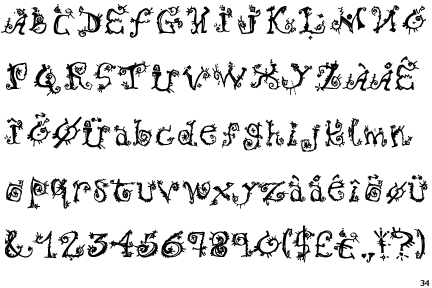 ABCDEFGHIJKLMNO
PQRSTUVWXYZÀÅÉ
ÎÕØÜabcdefghijklmn
opqrstuvwxyzàåéîõøü
&1234567890($£€.,!?)
34